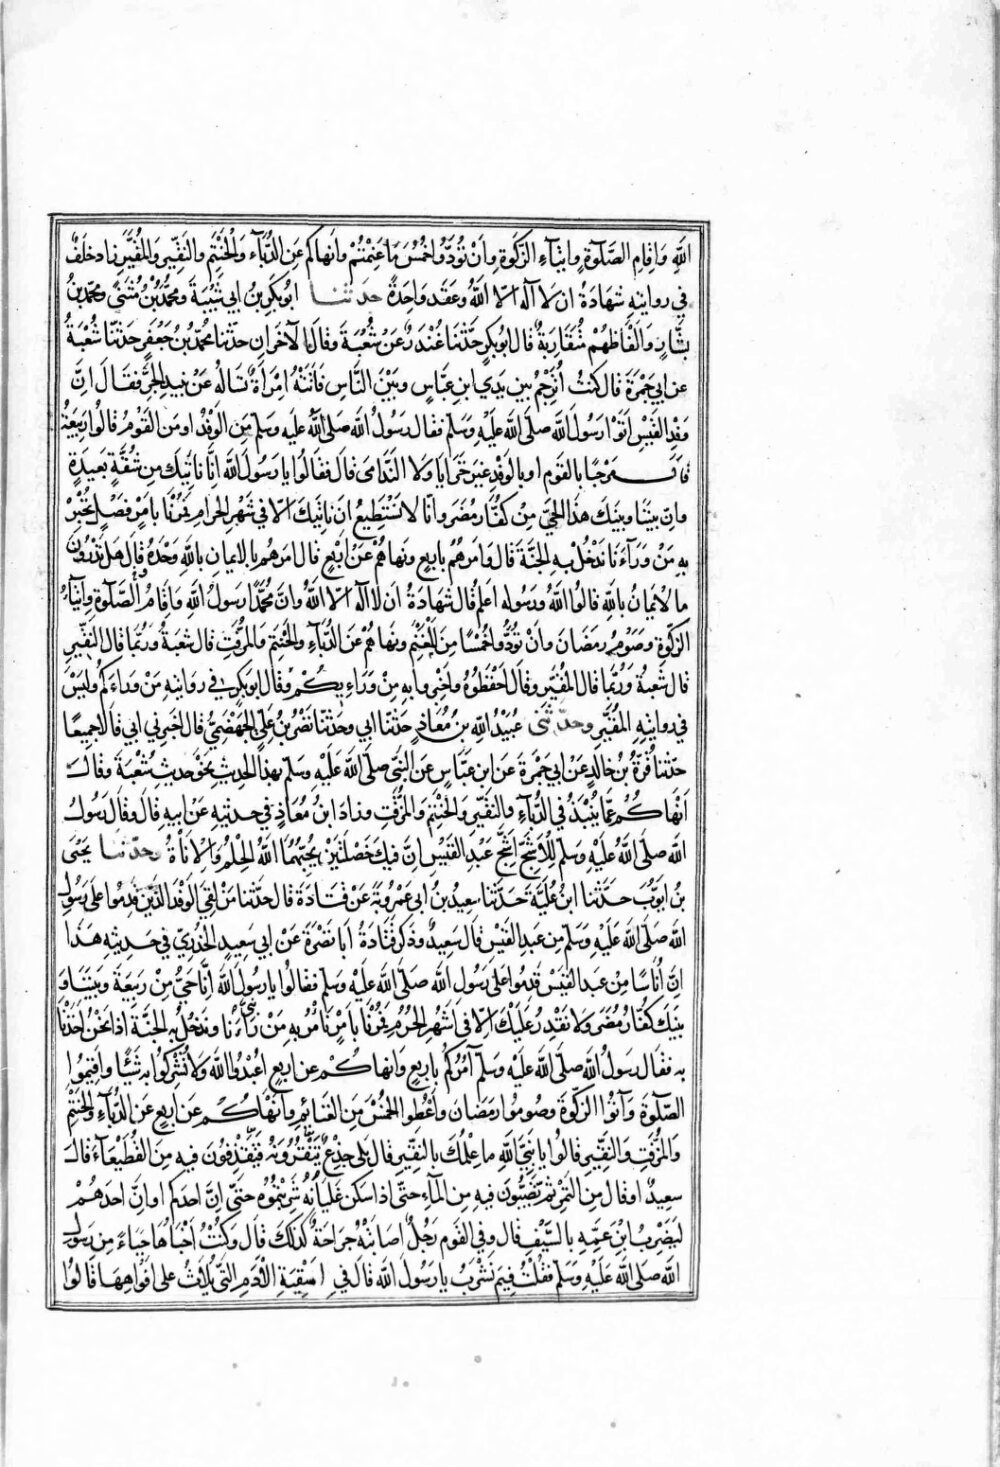 الله وَاِقَامِ الصَّلٰوةِ وَاِيْتَاءِ الزَّكٰوةِ وَاَنْ تُؤَدُّوا خُمُسَ مَا غَنِمْتُمْ وَاَنهاكم عَنِ الدُّبَّاءِ وَالْحَنْتَمِ والنَّقِيْرِ وَالمُقَيَّرِ زاد خلف
في روايتهِ شهَادَةُ ان لَا اله الا اللهُ وعَقَدَ وَاحِدَةً حدثنا ابوبكرِ بنُ ابي شَيْبَةَ ومحمَّدُ بْنُ مُثَنّى ومحمّد بنُ
بشَّارٍ وَاَلْفَاظهُمْ مُتَقَارِبَةٌ قال ابُوبكرٍ حَدّثنَا غُنْدَرٌ عَنْ شُعْبَةَ وقَالَ الآخَرانِ حدّثنا محمّدُ بنُ جَعْفَرٍ حَدّثنَا شعْبَةُ
عن ابي جَمْرَةَ قال كنتُ اُتَرْجِمُ بين يَدَي ابنِ عَبَّاسٍ وبَيْنَ النَّاسِ فَاَتَتْهُ امْرَأةٌ تسَالهُ عَنْ نبيذِ الجَرِّ فقَالَ اِنَّ
وَفْدَ القَيْسِ اَتَوْا رَسُولَ اللهِ صلى الله عَلَيْهِ وَسَلّم فقال رَسُولُ الله صلى الله عليه وسلم مَنِ الْوَفْدُ اومن القَوْمُ قالُوا رَبيعَةُ
قَالَ مَرحبًا بالقَوم اوبالوَفْدِ غيرَ خَزايَا وَلا النَّدامى قال فقالُوا يا رَسُولَ اللهِ اِنّا ناتيكَ مِن شُقَّةٍ بَعيدَةٍ
واِنّ بيننَا وبينَكَ هذَا الحَيَّ مِن كفَّارِ مُضَرَ واِنّا لا نَسْتطِيعُ ان نَاتيَكَ الاّ في شَهْرِ الحرامِ فَمُرْنَا بِامْرٍ فَصْلٍ نُخْبِرْ
بِهِ مَنْ وَرَآءَنا نَدْخُلُ به الجنَّةَ قالَ فامَرَهُمْ باَربعٍ ونَهاهُمْ عَنْ اَرْبَعٍ قال امَرَهُم بالاِيمانِ باللهِ وَحْدَهُ قال هل تدرُونَ
ما الاِيمَانُ باللهِ قالُوا اللهُ ورَسُوله اعلمُ قال شهَادَةُ ان لا اله الا اللهُ وانَّ محمَّدًا رسولُ اللهِ وَاِقَامُ الصَّلٰوةِ وايْتَآءُ
الزكوةِ وصَوْمُ رمَضَانَ واَنْ تُؤَدُّوا خُمْسًا مِنَ المَغْنَمِ ونَهَاهُمْ عَنِ الدُّبَّاءِ والحَنتمِ والمزَفَّتِ قال شعْبَةُ ورُبَّمَا قال النَّقيرِ
قال شعبَةُ ورُبّما قال المُقَيَّرِ وقَالَ احْفَظُوهُ وَاَخْبِرُوا بهِ مِنْ وَرَاءِ يكُمْ وقَالَ ابوبَكرٍ في روَايتهِ مَنْ وَرَاءَكُمْ ولَيْسَ
في روايتِهِ المُقَيَّرِ وحَدّثنى عُبَيْدُ اللهِ بنُ مُعَاذٍ حَدّثنَا ابي وحَدّثنَا نَصْرُ بنُ عَلِيٍّ الجَهْضَمِيُّ قال اَخبَرني ابي قالا جَمِيعًا
حَدّثنا قُرَّةُ بنُ خالدٍ عَنْ ابي جَمْرَةَ عَنَ ابنِ عَبَّاسٍ عَنِ النَّبيِّ صلى الله عَلَيْهِ وَسَلّم بهذا الحَديثِ نحوَ حَديثِ شُعْبَةَ وقال
اَنْهَاكُمْ عَمَّا يُنْبَذُ في الدُّبّاءِ والنَّقيرِ والحَنْتَمِ والمُزَفَّتِ وزادَ ابنُ مُعَاذٍ في حديثهِ عَنْ اَبيهِ قالَ وقال رَسُولُ
الله صلى الله عَلَيْهِ وَسَلّم لِلْأشَجِّ اَشَجِّ عَبْدِ القَيْسِ اِنَّ فيكَ خَصْلَتَيْنِ يُحِبُّهُمَا اللهُ الحِلْمُ وَالْاَنَاةُ وحَدّثنا يَحْيَى
بنُ ايوبَ حَدّثنا ابنُ عُلَيَّةَ حَدّثنا سعيدُ بنُ ابي عَرُوبَةَ عَنْ قتَادَةَ قال حَدّثنا مَنْ لَقِيَ الوَفْدَ الَّذِينَ قدِمُوا على رَسُولِ
الله صَلّى الله عَلَيْهِ وسَلّم مِن عَبدِ القَيْس قال سَعِيدٌ وذكر قتَادَةُ ابَا نَضْرَةَ عَنْ ابي سَعِيدٍ الخُدْرِيِّ في حَدِيثهِ هَذا
اِنّ اُنَاسًا مِنْ عَبد القَيْس قَدِمُوا على رَسُول الله صَلّى الله عَلَيْه وسَلّم فقالُوا يا رَسُولَ اللهِ اِنَّا حَيٌّ مِنْ رَبيعَةَ وبَيْنَنَا وَ
بينَكَ كُفّارُ مُضَرَ ولا نَقْدِرُ عَلَيْكَ الا في اَشهُرِ الحُرُمِ فَمُرْنَا بِاَمْرٍ نَامُرُ بهِ مَنْ وَرَآءَنَا ونَدْخُلُ بهِ الجنَّةَ اذا نَحْنُ اَخَذْنَا
به فقال رَسولُ اللهِ صلى الله عَلَيْه وسَلّم آمُرُكُمْ باَربعٍ وَانهاكُمْ عن اربعٍ اعْبُدُوا اللهَ ولَا تُشْرِكُوا بهِ شَيْئًا واَقِيمُوا
الصّلٰوةَ وآتوا الزّكوةَ وصُومُوا رمَضَانَ واَعْطُوا الخُمْسَ مِنَ الغَنائِمِ واَنْهَاكُمْ عن اَربَعٍ عَنِ الدُّبّاءِ والحَنْتَمِ
والمُزَفَّتِ والنَّقيْرِ قالُوا يا نَبيَّ اللهِ ما عِلْمُكَ بالنَّقِيرِ قال بَلَى جِذْعٌ تَنْقُرُونَهُ فتَقْذِفُونَ فيه مِنَ القُطَيْعَآءِ قالَ
سعيدٌ اوقالَ مِنَ التَّمْرِ ثم تَصُبُّونَ فيهِ مِنَ المَاءِ حتَّى اذا سكَنَ غَلَيَانُهُ شَرِبْتُمُوهُ حتّى اِنَّ احَدكم اواِنَّ احَدَهُمْ
لَيَضْرِبُ ابنَ عَمِّهِ بالسّيْفِ قال وفي القَوم رَجُلٌ اصَابَتْهُ جِرَاحَةٌ كذلكَ قالَ وكُنْتُ اَخْبَاُهَا حَيَاءً مِن رَسُولِ
اللهِ صلى الله عَلَيْهِ وسَلّم فقُلْتُ فَفِيمَ نَشْرَبُ يا رَسُولَ اللهِ قالَ في اَسْقِيَةِ الْاَدَمِ الّتي يُلاثُ على افوَاهِهَا قَالُوا